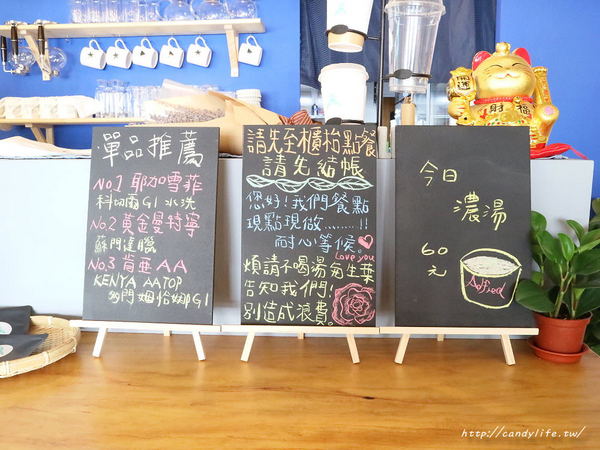 單品推薦
No.1 耶加雪菲
科切爾G1 水洗
No.2 黃金曼特寧
蘇門達臘
No.3 肯亞AA
KENYA AATOP
請先至櫃枱點餐
請先結帳
您好!我們餐點
現點現做........!!
耐心等候。
Love you
煩請不喝湯、生菜
告知我們!
別造成浪費。
今日
濃湯
60
元
財
福
http://candylife.tw/